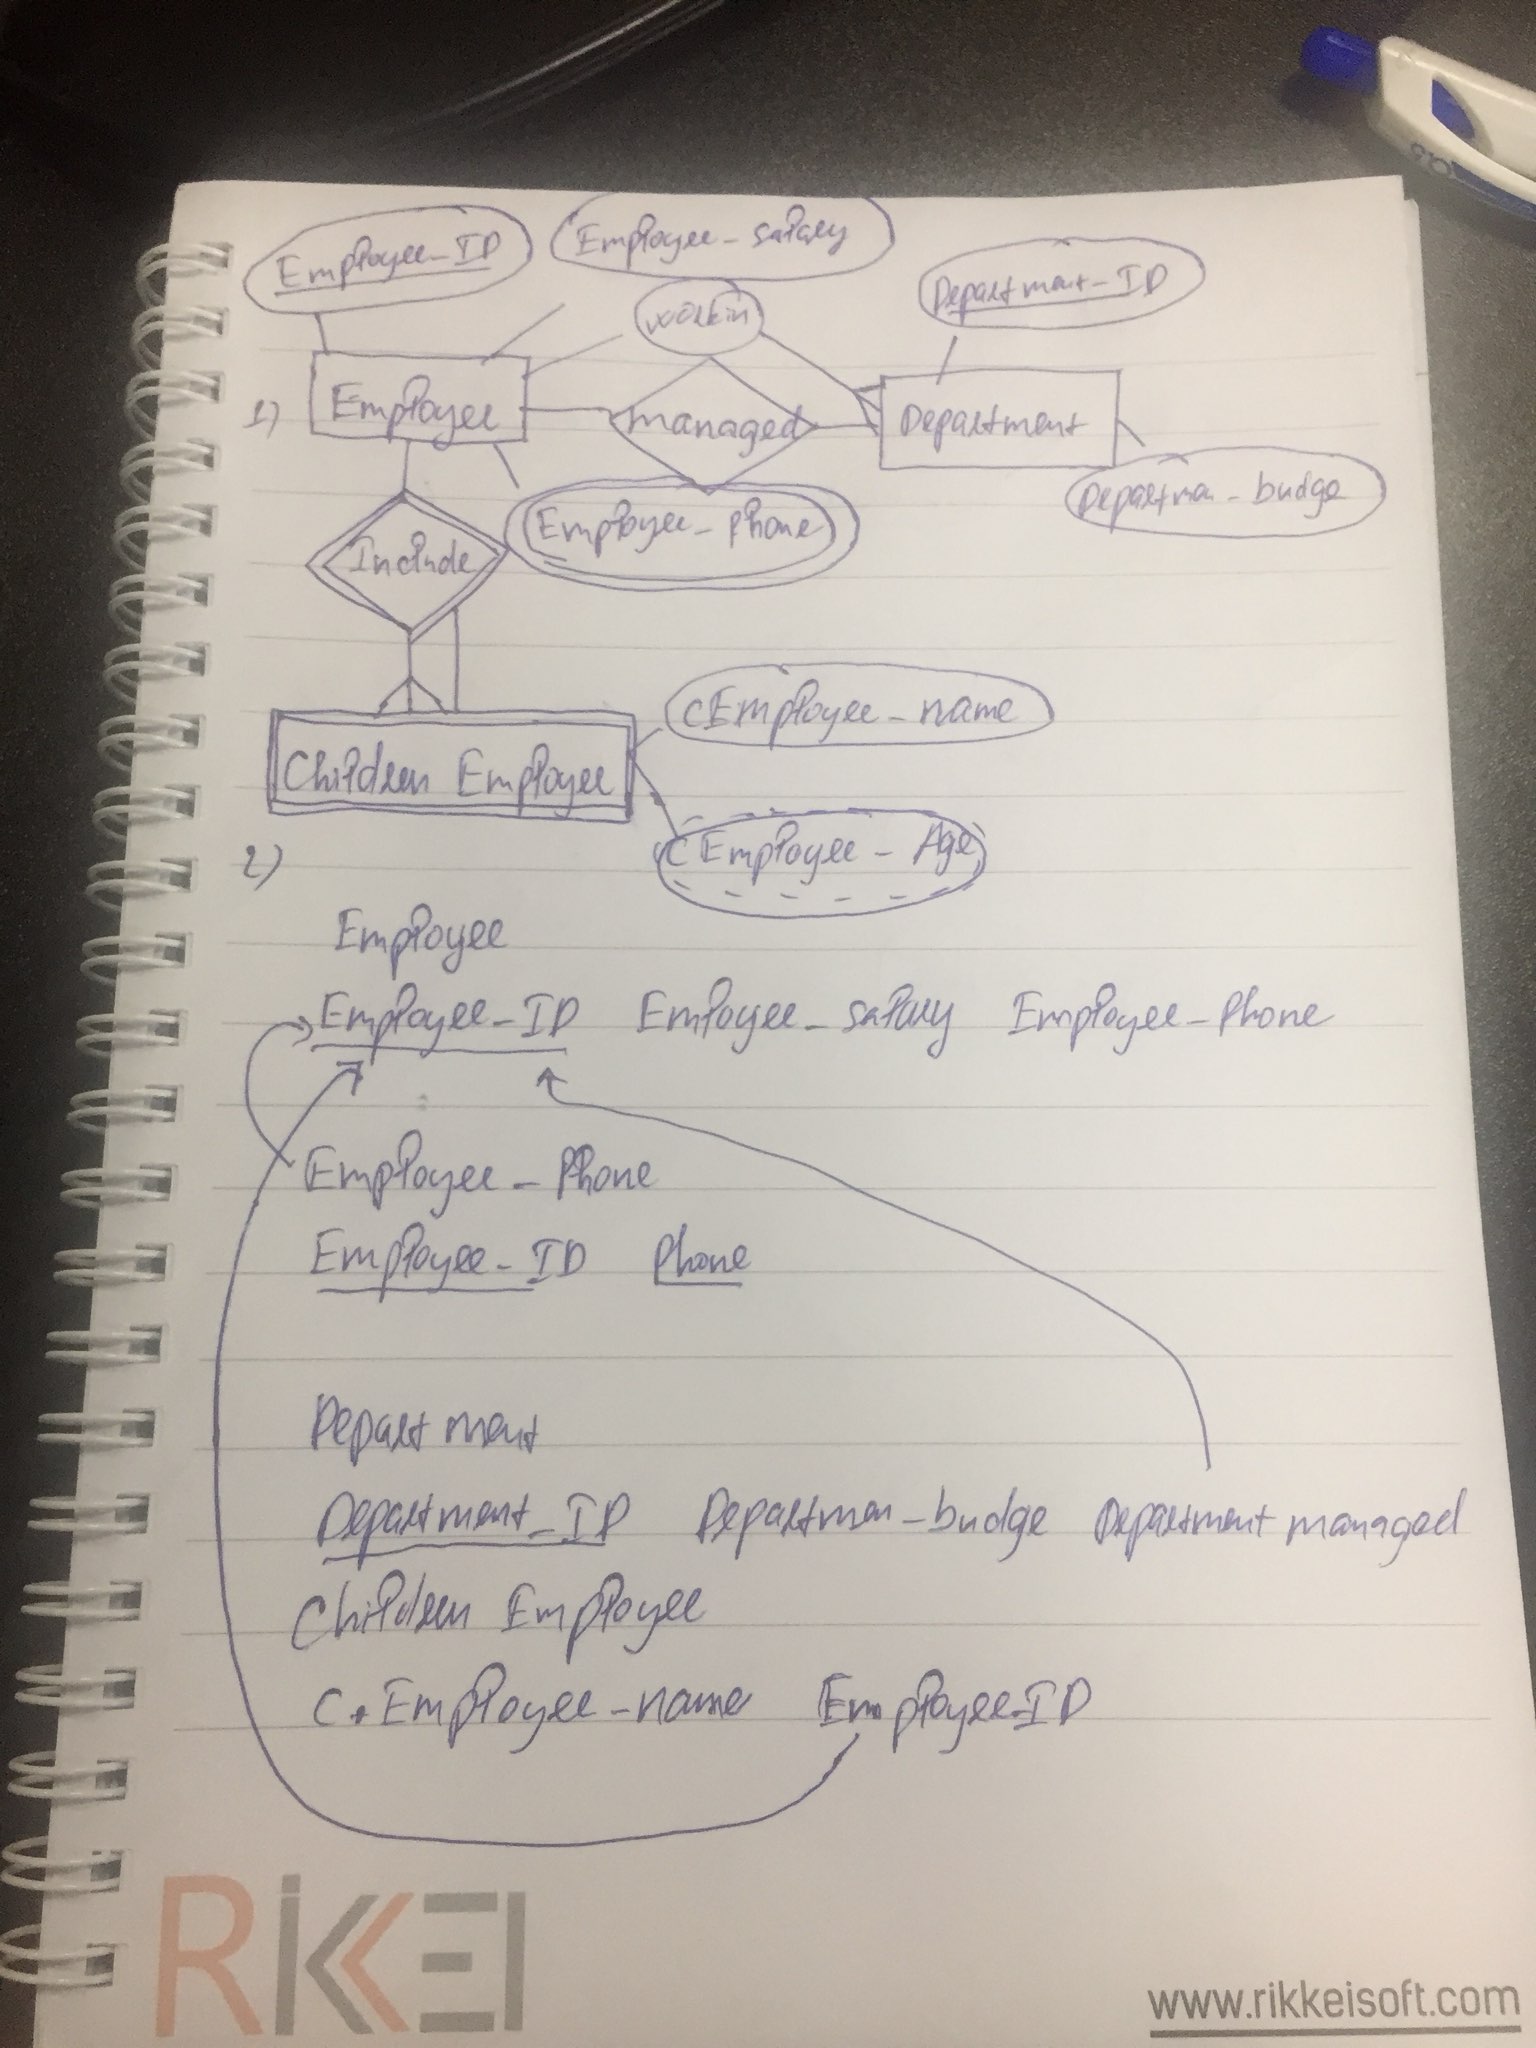 Employee_ID
Employee_salary
workin
Department_ID
1)
Employee
managed
Department
Departmen_budge
Employee_phone
Include
CEmployee_name
Children Employee
CEmployee_Age
2)
Employee
Employee_ID Employee_salary Employee_phone
Employee_Phone
Employee_ID phone
Department
Department_ID Departmen_budge Department managed
Children Employee
C.Employee_name Employee_ID
RIKKEI
www.rikkeisoft.com